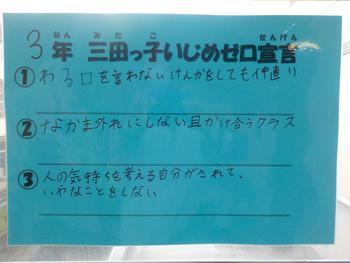 3年 三田っ子いじめゼロ宣言
ねん みたこ せんげん
①わる口を言わないけんかをしても仲直り
②なかま外れにしない 声かけ合うクラス
③人の気持ちを考える自分がされて、
いやなことをしない